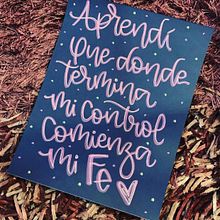 Aprendí
que donde
termina
mi control
Comienza
mi Fe